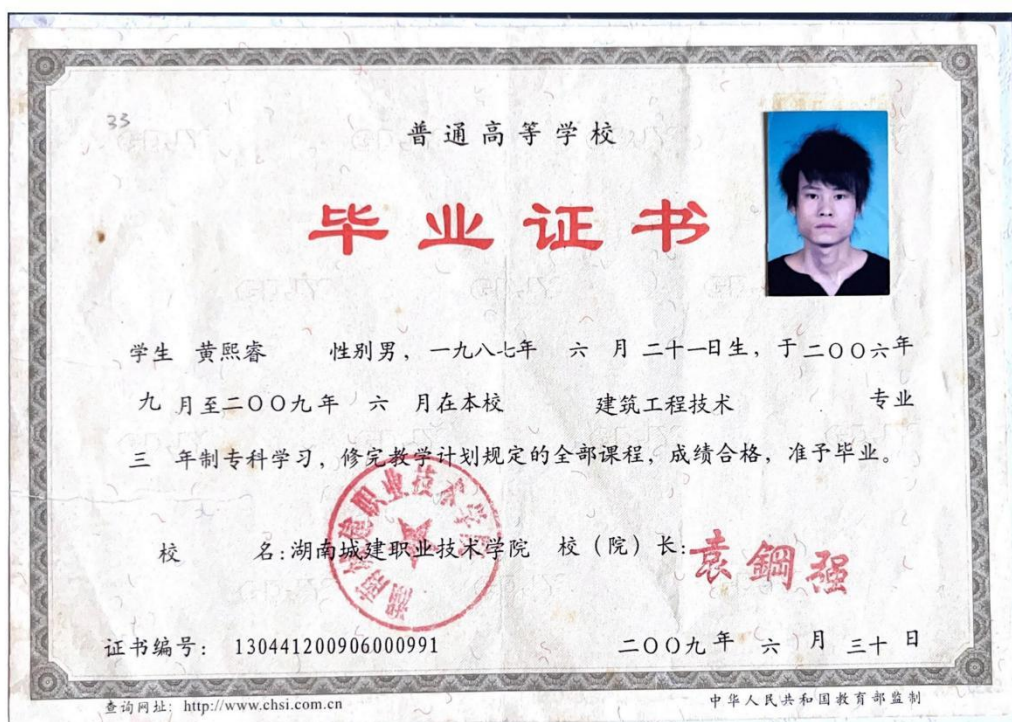 33
普通高等学校
毕业证书
学生 黄熙睿 性别男，一九八七年 六 月 二十一日生，于二〇〇六年
九 月至二〇〇九年 六 月在本校 建筑工程技术 专业
三 年制专科学习，修完教学计划规定的全部课程，成绩合格，准予毕业。
校 名:湖南城建职业技术学院 校（院）长:袁鋼强
湖南城建职业技术学院
证书编号： 130441200906000991 二〇〇九年 六 月 三十 日
查询网址: http://www.chsi.com.cn 中华人民共和国教育部监制